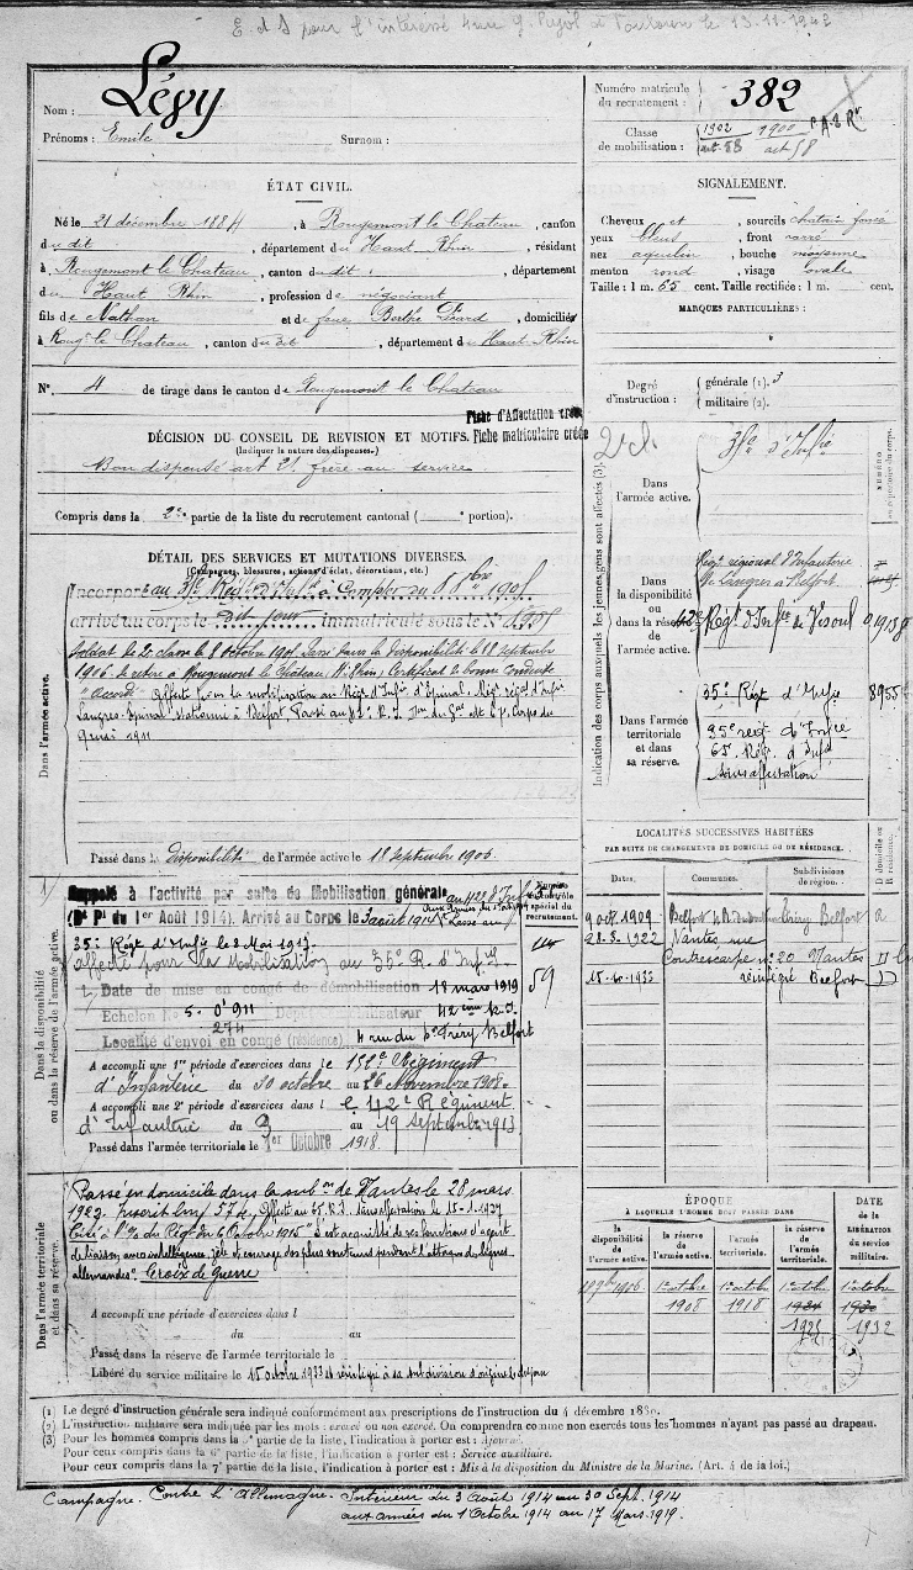 E. d S pour l'intéressé 4 rue G. Pujol à Toulouse le 13-11-1942
Nom : Lévy
Prénoms : Emile Surnom :
Numéro matricule du recrutement : 382
Classe de mobilisation : 1902 1900
ÉTAT CIVIL.
Né le 21 décembre 1884, à Rougemont le Chateau, canton
du dit, département du Haut Rhin, résidant
à Rougemont le Chateau, canton du dit, département
du Haut Rhin, profession de négociant
fils de Nathan et de feue Berthe, domiciliés
à Roug le Chateau, canton du dit, département du Haut-Rhin
N° 4 de tirage dans le canton de Rougemont le Chateau
SIGNALEMENT.
Cheveux et, sourcils chatain foncé
yeux bleus, front
nez aquilin, bouche moyenne
menton rond, visage ovale
Taille : 1 m. 65 cent. Taille rectifiée : 1 m. cent.
MARQUES PARTICULIÈRES :
Degré d'instruction :
générale (1). 3
militaire (2).
Fiche d'Affectation créée
Fiche matriculaire créée
DÉCISION DU CONSEIL DE REVISION ET MOTIFS.
(Indiquer la nature des dispenses.)
Bon dispensé art 21 frère au service
Compris dans la 2e partie de la liste du recrutement cantonal ( e portion).
DÉTAIL DES SERVICES ET MUTATIONS DIVERSES.
(Campagnes, blessures, actions d'éclat, décorations, etc.)
Incorporé au 35e Régt d'Infie à Compter du 8 8bre 1905
arrivé au corps le dit jour immatriculé sous le N°
Soldat de 2e classe le 8 octobre 1905. Passé dans la disponibilité le 18 septembre
1906. Se retire à Rougemont le Château, Ht Rhin; Certificat de bonne conduite
"Accordé" Affecté pour la mobilisation au Régt d'Infie d'Epinal. Régt régal d'Infie
Langres-Epinal stationné à Belfort, Passé au 42e R.I.
Dans l'armée active.
Passé dans la disponibilité de l'armée active le 18 septembre 1906.
Indication des corps auxquels les jeunes gens sont affectés (3).
NUMÉRO au répertoire du corps.
Dans l'armée active.
35e d'Infie
Dans la disponibilité ou dans la réserve de l'armée active.
Régt régional d'Infanterie
de Langres à Belfort.
Régt d'Infie de Vesoul
Dans l'armée territoriale et dans sa réserve.
35e Régt d'Infie 8955
35e régt d'Infie
65e Régt d'Infie
sans affectation
LOCALITÉS SUCCESSIVES HABITÉES
PAR SUITE DE CHANGEMENTS DE DOMICILE OU DE RÉSIDENCE.
Dates. Communes. Subdivisions de région. D domicile ou R résidence.
9 oct. 1909 Belfort Belfort R
28.3.1922 Nantes, rue
Contrescarpe n° 20 Nantes D
15-10-1933 réintégré Belfort D
Dans la disponibilité ou dans la réserve de l'armée active.
Rappelé à l'activité par suite de Mobilisation générale au 42e d'Infie
(Dt Pl du 1er Août 1914). Arrivé au Corps le 3 août 1914 Passé au
35e Régt d'Infie le 8 Mai 1917.
affecté pour la mobilisation au 35e R. d'Infie
Date de mise en congé de démobilisation 18 mars 1919
Echelon N° 5. 0'911 Dépôt démobilisateur 42ème R.I.
274
Localité d'envoi en congé (résidence) 4 rue du Belfort
Numéro au contrôle spécial du recrutement.
59
A accompli une 1re période d'exercices dans le 152e Régiment
d'Infanterie du 30 octobre au 26 Novembre 1908.
A accompli une 2e période d'exercices dans le 42e Régiment
d'Infanterie du 3 au 19 septembre 1913
Passé dans l'armée territoriale le 1er Octobre 1918.
Dans l'armée territoriale et dans sa réserve.
Passé en domicile dans la subon de Nantes le 28 mars
1922. Affecté au 65e R.I. Sans affectation le 15-1-1927
Cité à l'o/ du Régt du 6 Octobre 1915 "S'est acquitté de ses fonctions d'agent
de liaison avec intelligence, zèle et courage des plus soutenus pendant l'attaque des lignes
allemandes". Croix de guerre
A accompli une période d'exercices dans l
du au
Passé dans la réserve de l'armée territoriale le
Libéré du service militaire le 15 octobre 1933 et réintégré à sa subdivision d'origine
ÉPOQUE
À LAQUELLE L'HOMME DOIT PASSER DANS
la disponibilité de l'armée active. la réserve de l'armée active. l'armée territoriale. la réserve de l'armée territoriale.
DATE de la LIBÉRATION du service militaire.
1906 1er octobre 1908 1er octobre 1918 1er octobre 1924 1925 1er octobre 1930 1932
(1) Le degré d'instruction générale sera indiqué conformément aux prescriptions de l'instruction du 4 décembre 1889.
(2) L'instruction militaire sera indiquée par les mots : exercé ou non exercé. On comprendra comme non exercés tous les hommes n'ayant pas passé au drapeau.
(3) Pour les hommes compris dans la 5e partie de la liste, l'indication à porter est : Ajourné.
Pour ceux compris dans la 6e partie de la liste, l'indication à porter est : Service auxiliaire.
Pour ceux compris dans la 7e partie de la liste, l'indication à porter est : Mis à la disposition du Ministre de la Marine. (Art. 4 de la loi.)
Campagne. Contre l'Allemagne. Intérieur du 3 Août 1914 au 30 Sept. 1914
aux armées du 1 Octobre 1914 au 17 Mars 1919.